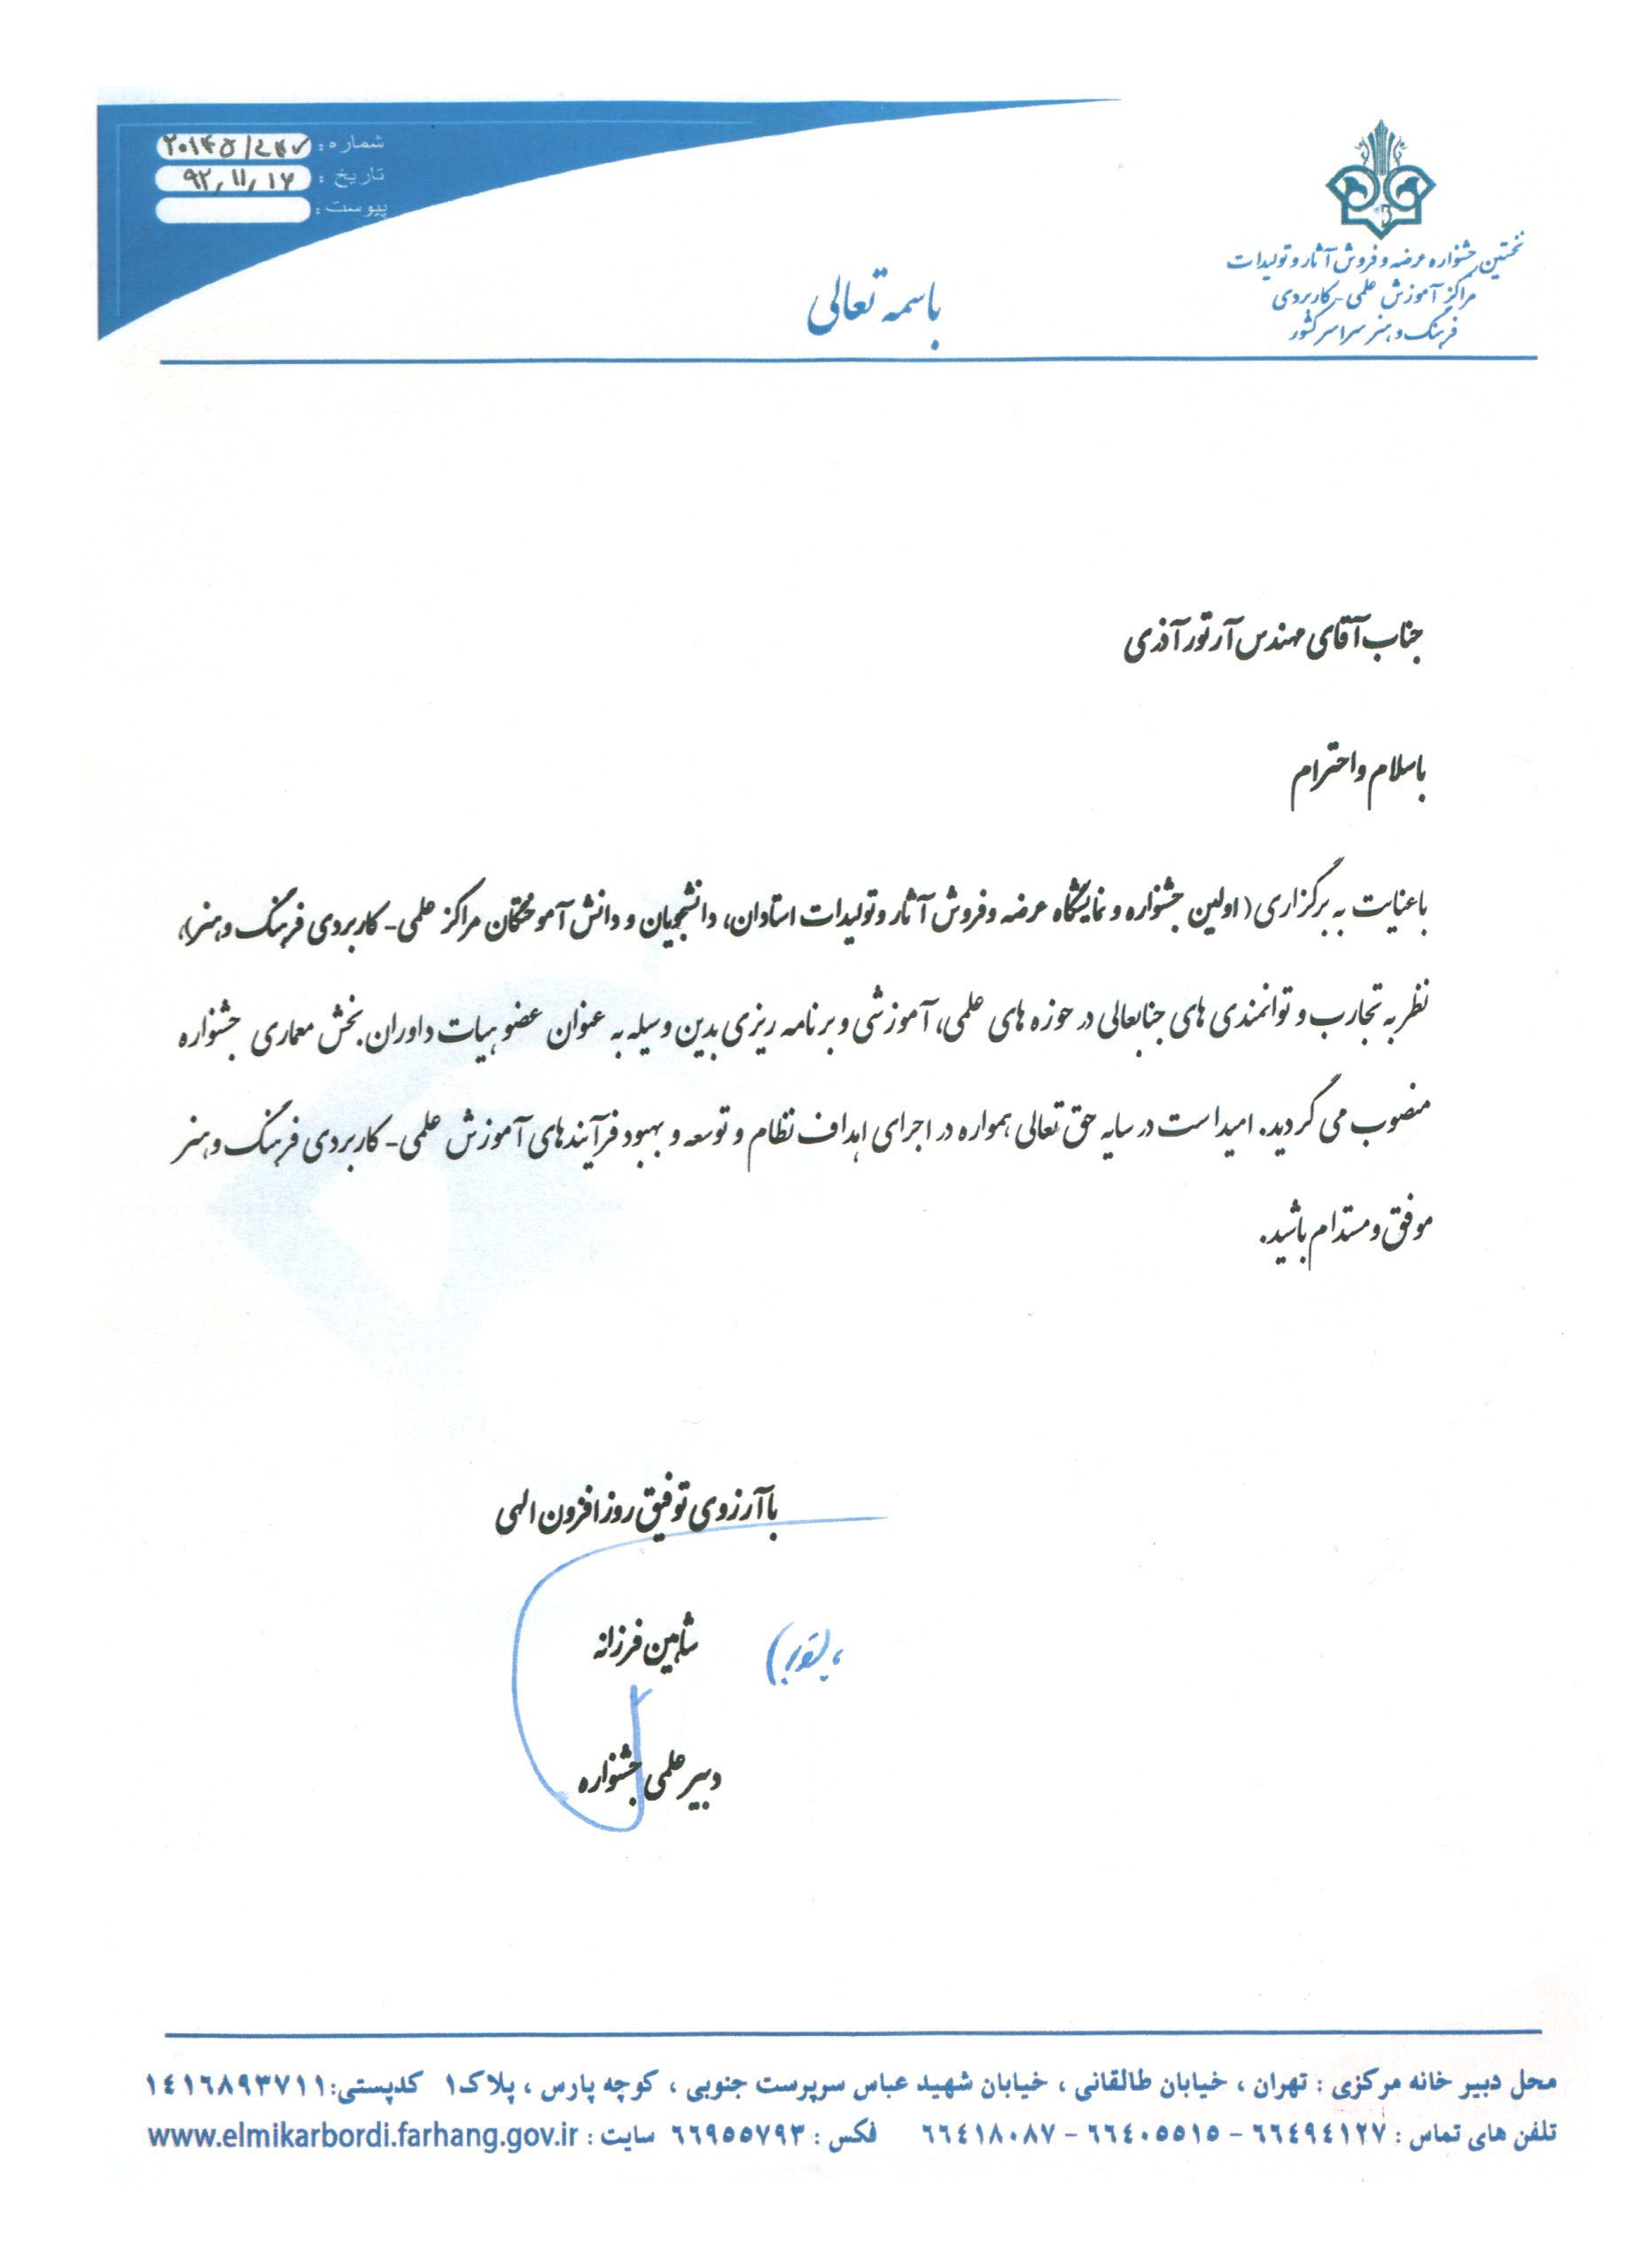 شماره : ۲۰۱۴۵/۲۴۷
تاریخ : ۹۲,۱۱,۱۶
پیوست :
نخستین جشنواره عرضه و فروش آثار و تولیدات
مراکز آموزش علمی - کاربردی
فرهنگ و هنر سراسر کشور
باسمه تعالی
جناب آقای مهندس آرتور آذری
باسلام و احترام
باعنایت به برگزاری (اولین جشنواره و نمایشگاه عرضه و فروش آثار و تولیدات استادان، دانشجویان و دانش آموختگان مراکز علمی- کاربردی فرهنگ و هنر)،
نظر به تجارب و توانمندی های جنابعالی در حوزه های علمی، آموزشی و برنامه ریزی بدین وسیله به عنوان عضو هیات داوران بخش معماری جشنواره
منصوب می گردید. امید است در سایه حق تعالی همواره در اجرای اهداف نظام و توسعه و بهبود فرآیندهای آموزش علمی- کاربردی فرهنگ و هنر
موفق و مستدام باشید.
باآرزوی توفیق روزافزون الهی
شاهین فرزانه
دبیر علمی جشنواره
محل دبیر خانه مرکزی : تهران ، خیابان طالقانی ، خیابان شهید عباس سرپرست جنوبی ، کوچه پارس ، پلاک۱ کدپستی:۱٤۱٦۸۹۳۷۱۱
تلفن های تماس : ٦٦٤۹٤۱۲۷ - ٦٦٤۰٥٥۱٥ - ٦٦٤۱۸۰۸۷ فکس : ٦٦۹٥٥۷۹۳ سایت : www.elmikarbordi.farhang.gov.ir